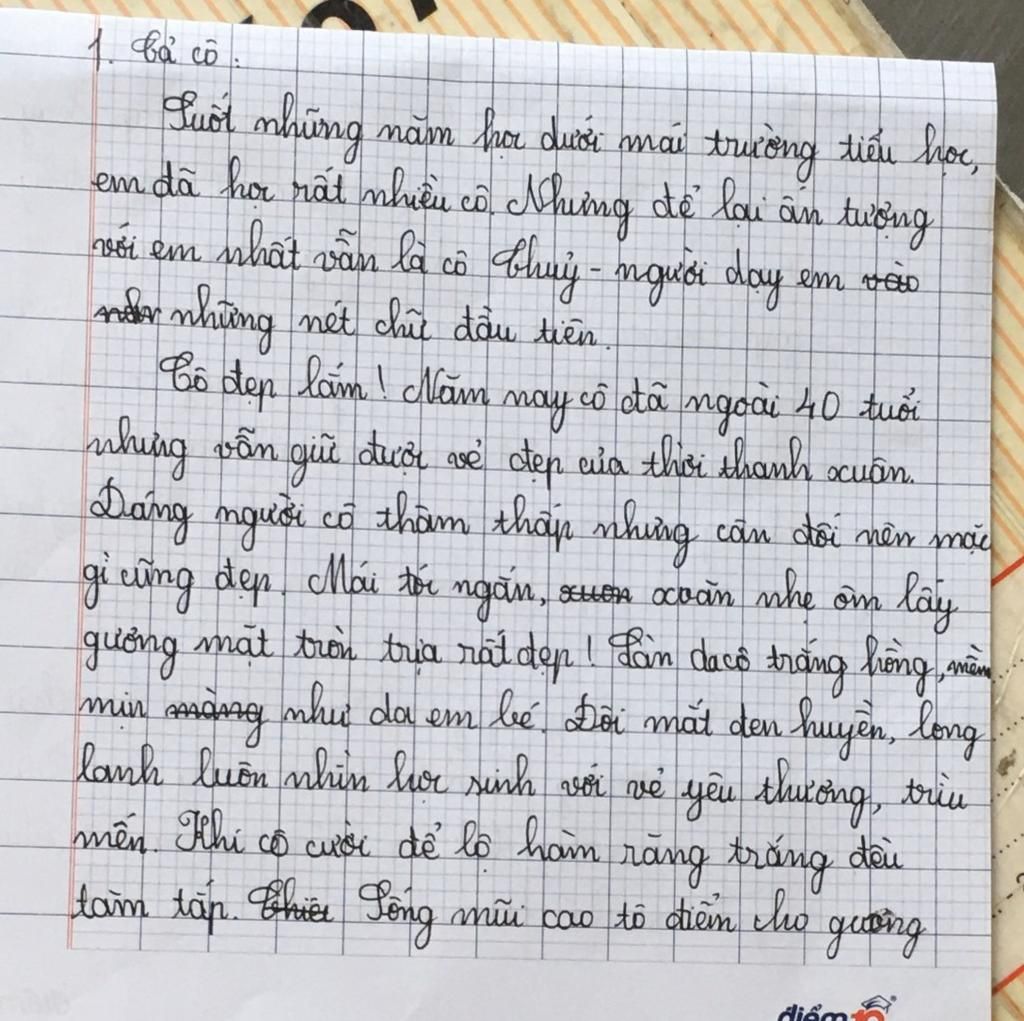 1. Tả cô:
Suốt những năm học dưới mái trường tiểu học,
em đã học rất nhiều cô. Nhưng để lại ấn tượng
với em nhất vẫn là cô Thuỷ - người dạy em vào
những nét chữ đầu tiên.
Cô đẹp lắm! Năm nay cô đã ngoài 40 tuổi
nhưng vẫn giữ được vẻ đẹp của thời thanh xuân.
Dáng người cô thâm thấp nhưng cân đối nên mặc
gì cũng đẹp. Mái tóc ngắn, xoăn nhẹ ôm lấy
gương mặt tròn trịa rất đẹp! Làn da cô trắng hồng, mềm
mịn màng như da em bé. Đôi mắt đen huyền, long
lanh luôn nhìn học sinh với vẻ yêu thương, trìu
mến. Khi cô cười để lộ hàm răng trắng đều
tăm tắp. Sống mũi cao tô điểm cho gương
điểm 10